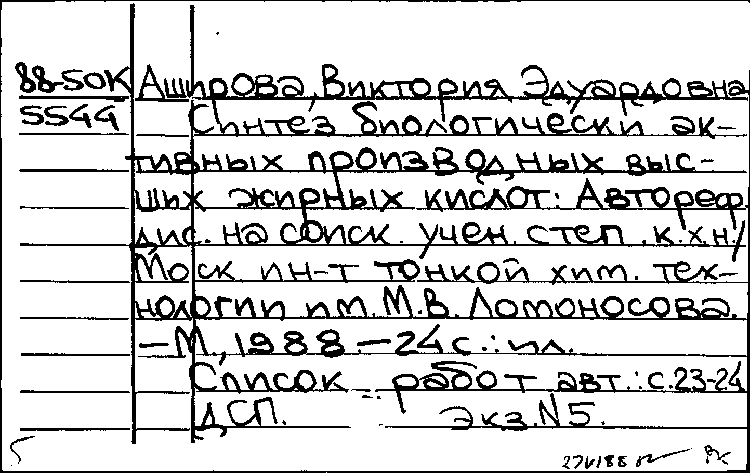 88-50К Аширова, Виктория Эдуардовна
5544 Синтез биологически ак-
тивных производных выс-
ших жирных кислот: Автореф.
дис. на соиск. учен. степ. к.х.н/
Моск. ин-т тонкой хим. тех-
нологии им. М.В. Ломоносова.
—М., 1988.—24с.: ил.
Список работ авт.: с.23-24
ДСП. Экз.N5.
5